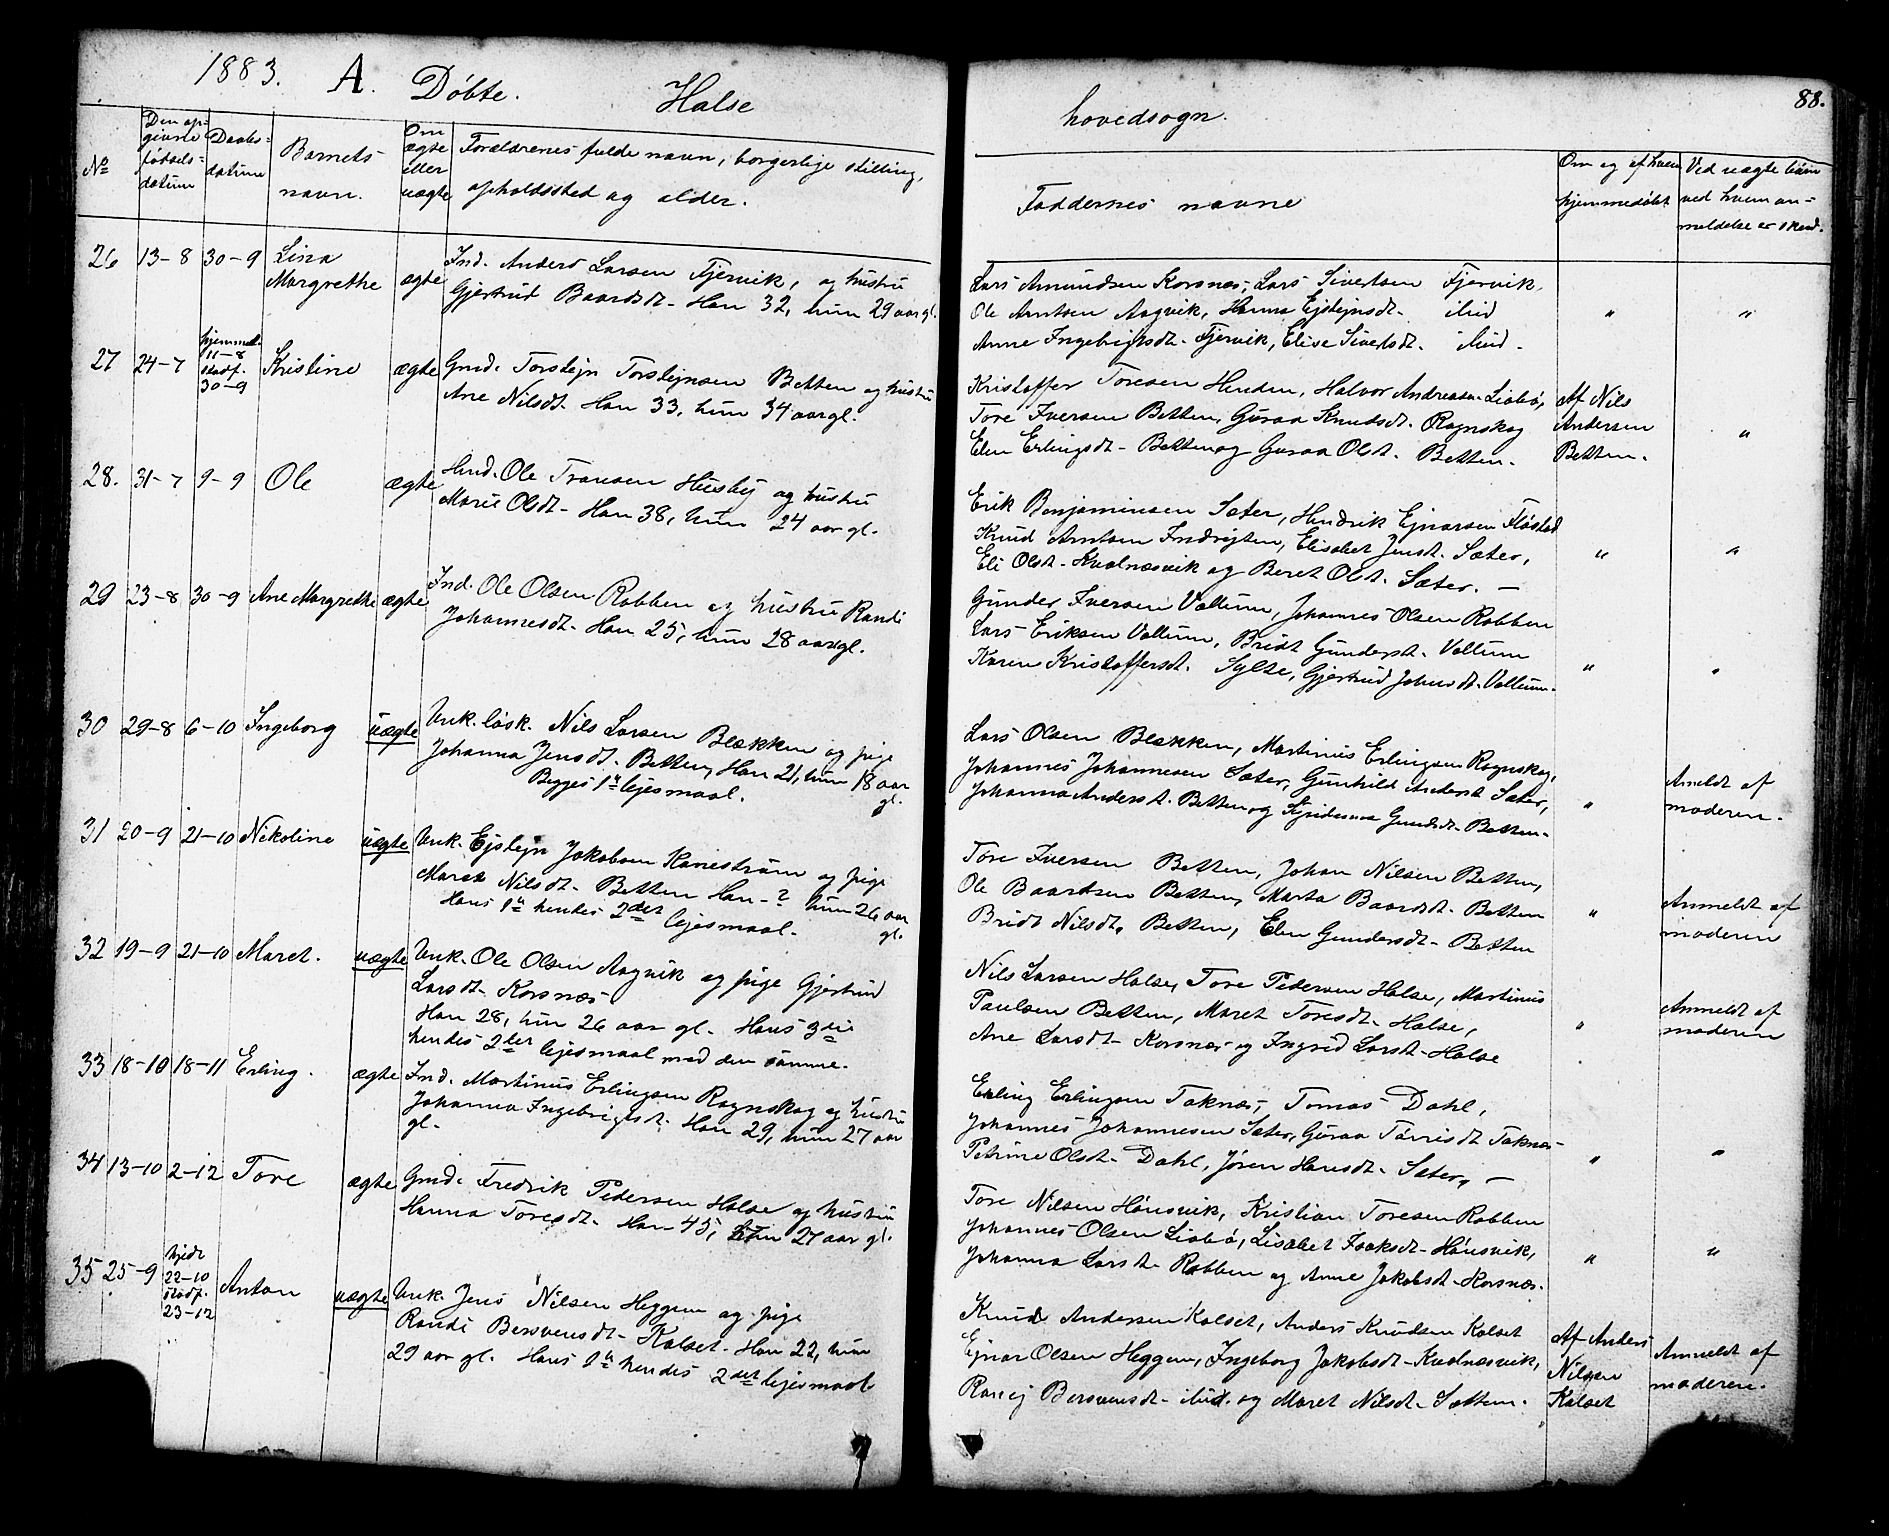 1883. A. Døbte. Halse
hovedsogn.
88.
No
Den op-
givne
fødsels-
datum
Daabs-
datum
Barnets
navn.
Om
ægte
eller
uægte
Forældrenes fulde navn, borgerlige stilling,
opholdssted og alder.
Faddernes navne
Om og af hvem
hjemmedøbt
Ved uægte børn
ved hvem an-
meldelse er skeed.
26 13-8 30-9 Lina
Margrethe ægte
Ind. Anders Larsen Fjervik, og hustru
Gjertrud Baardsdt. Han 32, hun 29 aar gl.
Lars Amundsen Korsnæs, Lars Sivertsen Fjervik,
Ole Arntsen Aagvik, Hanna Ejstejnsdt. ibid
Anne Ingebrigtsdt. Fjervik, Elise Sivertsdt. ibid.
" "
27 24-7
hjemmed.
11-8
stadf.
30-9
Kristine ægte
Gmd. Torstejn Torstejnsen Betten og hustru
Ane Nilsdt. Han 33, hun 34 aar gl.
Kristoffer Toresen Henden, Halvor Andreasen Liabø,
Tore Iversen Betten, Guraa Knudsdt. Rognskog
Elen Erlingsdt. Betten og Guraa Olsdt. Betten.
Af Nils
Andersen
Betten.
"
28. 31-7 9-9 Ole ægte
Hmd. Ole Tronsen Husby og hustru
Marit Olsdt. Han 38, hun 24 aar gl.
Erik Benjaminsen Sæter, Hendrik Ejnarsen Fløstad
Knud Arntsen Indrejten, Elisabet Jensdt. Sæter,
Eli Olsdt. Kvalnæsvik og Beret Olsdt. Sæter. —
" "
29 23-8 30-9 Ane Margrethe ægte
Ind. Ole Olsen Robben og hustru Randi
Johannesdt. Han 25, hun 28 aar gl.
Gunder Iversen Vullum, Johannes Olsen Robben
Lars Eriksen Vullum, Bridt Gundersdt. Vullum
Karen Kristoffersdt. Sylte, Gjertrud Johnsdt. Vullum.
" "
30 29-8 6-10 Ingeborg uægte
Unk. løsk. Nils Larsen Blækken og pige
Johanna Jensdt. Betten, Han 21, hun 18 aar
gl.
Begges 1ste lejesmaal.
Lars Olsen Blekken, Martinus Erlingsen Rognskog,
Johannes Johannesen Sæter, Gunhild Andersdt Sæter,
Johanna Andersdt. Betten og Gundsdt. Betten.
"
Anmeldt af
moderen.
31 20-9 21-10 Nikoline uægte
Unk. Ejstejn Jakobsen Kanestrøm og pige
Maret Nilsdt. Betten Han - ? hun 26 aar
gl.
Hans 1ste hendes 2det lejesmaal.
Tore Iversen Betten, Johan Nilsen Betten,
Ole Baardsen Betten, Marta Baardsdt. Betten
Bridt Nilsdt. Betten, Elen Gundersdt. Betten
"
Anmeldt af
moderen
32 19-9 21-10 Maret. uægte
Unk. Ole Olsen Aagvik og pige Gjertrud
Larsdt. Korsnæs
Han 28, hun 26 aar gl. Hans 3die
hendes 2det lejesmaal med den samme.
Nils Larsen Halse, Tore Pedersen Halse, Martinus
Paulsen Betten, Maret Toresdt. Halse,
Ane Larsdt. Korsnæs og Ingrid Larsdt. Halse
"
Anmeldt af
moderen
33 18-10 18-11 Erling. ægte
Ind. Martinus Erlingsen Rognskog og hustru
Johanna Ingebrigtsdt. Han 29, hun 27 aar
gl.
Erling Erlingsen Taknæs, Tomas Dahl,
Johannes Johannesen Sæter, Guraa Tørrisdt Taknæs
Petrine Olsdt. Dahl, Jøren Hansdt. Sæter, —
" "
34 13-10 2-12 Tore ægte
Gmd. Fredrik Pedersen Halse og hustru
Hanna Toresdt. Han 45, hun 27 aar gl.
Tore Nilsen Hønsvik, Kristian Toresen Robben
Johannes Olsen Liabø, Lisabet Isaksdt. Hønsvik,
Johanna Larsdt. Robben og Anne Jakobsdt. Korsnæs.
" "
35 25-9
hjdt
22-10
stadf.
23-12
Anton uægte
Unk. Jens Nilsen Heggem og pige
Randi Bersvensdt. Kalset. Han 22, hun
29 aar gl. Hans 1ste hendes 2det lejesmaal
Knud Andersen Kalset, Anders Knudsen Kalset
Ejnar Olsen Heggem, Ingeborg Jakobsdt. Kvalnæsvik,
Ranej Bersvensdt. ibid. og Maret Nilsdt. Sættem.
Af Anders
Nilsen
Kalset
Anmeldt af
moderen.